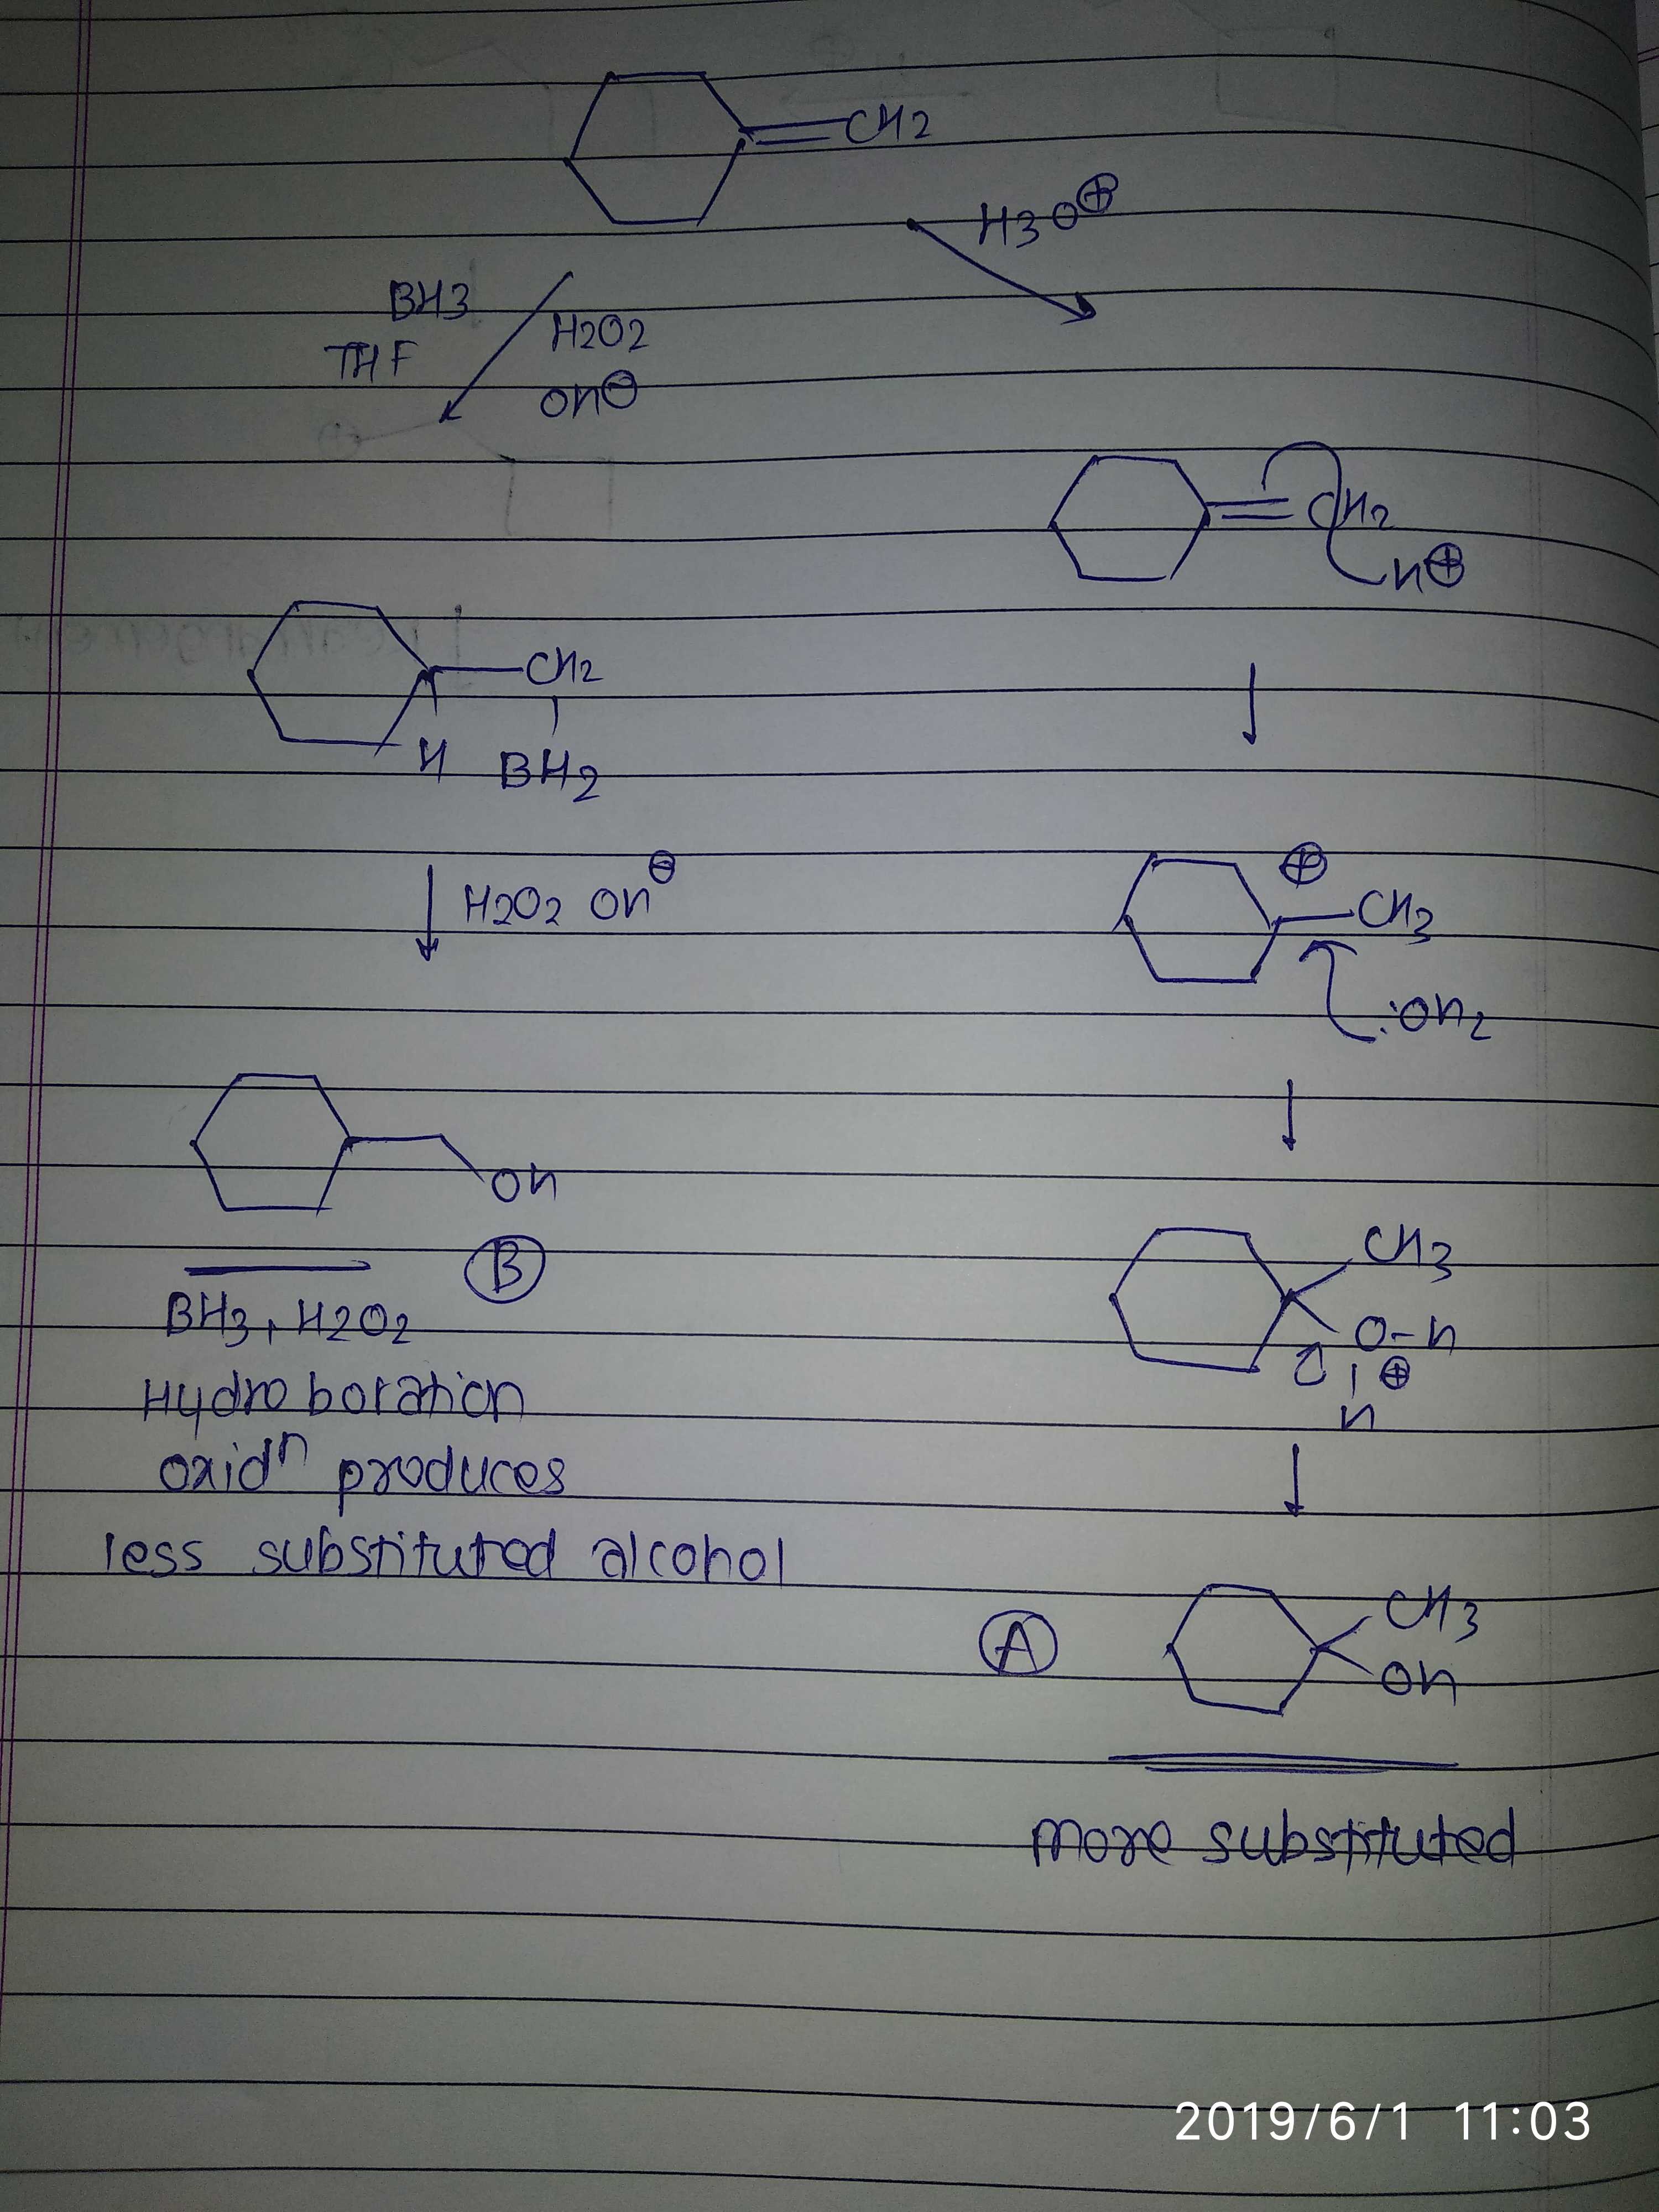 CH2
H3O⊕
BH3
THF
H2O2
OH⊖
CH2
H⊕
CH2
H BH2
H2O2 OH⊖
⊕
CH3
:OH2
OH
B
BH3, H2O2
Hydroboration
oxidn produces
less substituted alcohol
CH3
O-H
⊕
H
A
CH3
OH
more substituted
2019/6/1 11:03